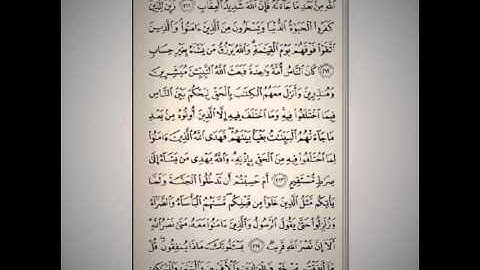 اللَّهِ مِنْ بَعْدِ مَا جَاءَتْهُ فَإِنَّ اللَّهَ شَدِيدُ الْعِقَابِ ﴿٢١١﴾ زُيِّنَ لِلَّذِينَ
كَفَرُوا الْحَيَوٰةُ الدُّنْيَا وَيَسْخَرُونَ مِنَ الَّذِينَ ءَامَنُوا وَالَّذِينَ
اتَّقَوْا فَوْقَهُمْ يَوْمَ الْقِيَٰمَةِ وَاللَّهُ يَرْزُقُ مَنْ يَشَاءُ بِغَيْرِ حِسَابٍ
﴿٢١٢﴾ كَانَ النَّاسُ أُمَّةً وَٰحِدَةً فَبَعَثَ اللَّهُ النَّبِيِّۦنَ مُبَشِّرِينَ
وَمُنْذِرِينَ وَأَنْزَلَ مَعَهُمُ الْكِتَٰبَ بِالْحَقِّ لِيَحْكُمَ بَيْنَ النَّاسِ
فِيمَا اخْتَلَفُوا فِيهِ وَمَا اخْتَلَفَ فِيهِ إِلَّا الَّذِينَ أُوتُوهُ مِنْ بَعْدِ
مَا جَاءَتْهُمُ الْبَيِّنَٰتُ بَغْيًا بَيْنَهُمْ فَهَدَى اللَّهُ الَّذِينَ ءَامَنُوا
لِمَا اخْتَلَفُوا فِيهِ مِنَ الْحَقِّ بِإِذْنِهِ وَاللَّهُ يَهْدِي مَنْ يَشَاءُ إِلَىٰ
صِرَٰطٍ مُسْتَقِيمٍ ﴿٢١٣﴾ أَمْ حَسِبْتُمْ أَنْ تَدْخُلُوا الْجَنَّةَ وَلَمَّا
يَأْتِكُمْ مَثَلُ الَّذِينَ خَلَوْا مِنْ قَبْلِكُمْ مَسَّتْهُمُ الْبَأْسَاءُ وَالضَّرَّاءُ
وَزُلْزِلُوا حَتَّىٰ يَقُولَ الرَّسُولُ وَالَّذِينَ ءَامَنُوا مَعَهُ مَتَىٰ نَصْرُ اللَّهِ
أَلَا إِنَّ نَصْرَ اللَّهِ قَرِيبٌ ﴿٢١٤﴾ يَسْـَٔلُونَكَ مَاذَا يُنْفِقُونَ قُلْ